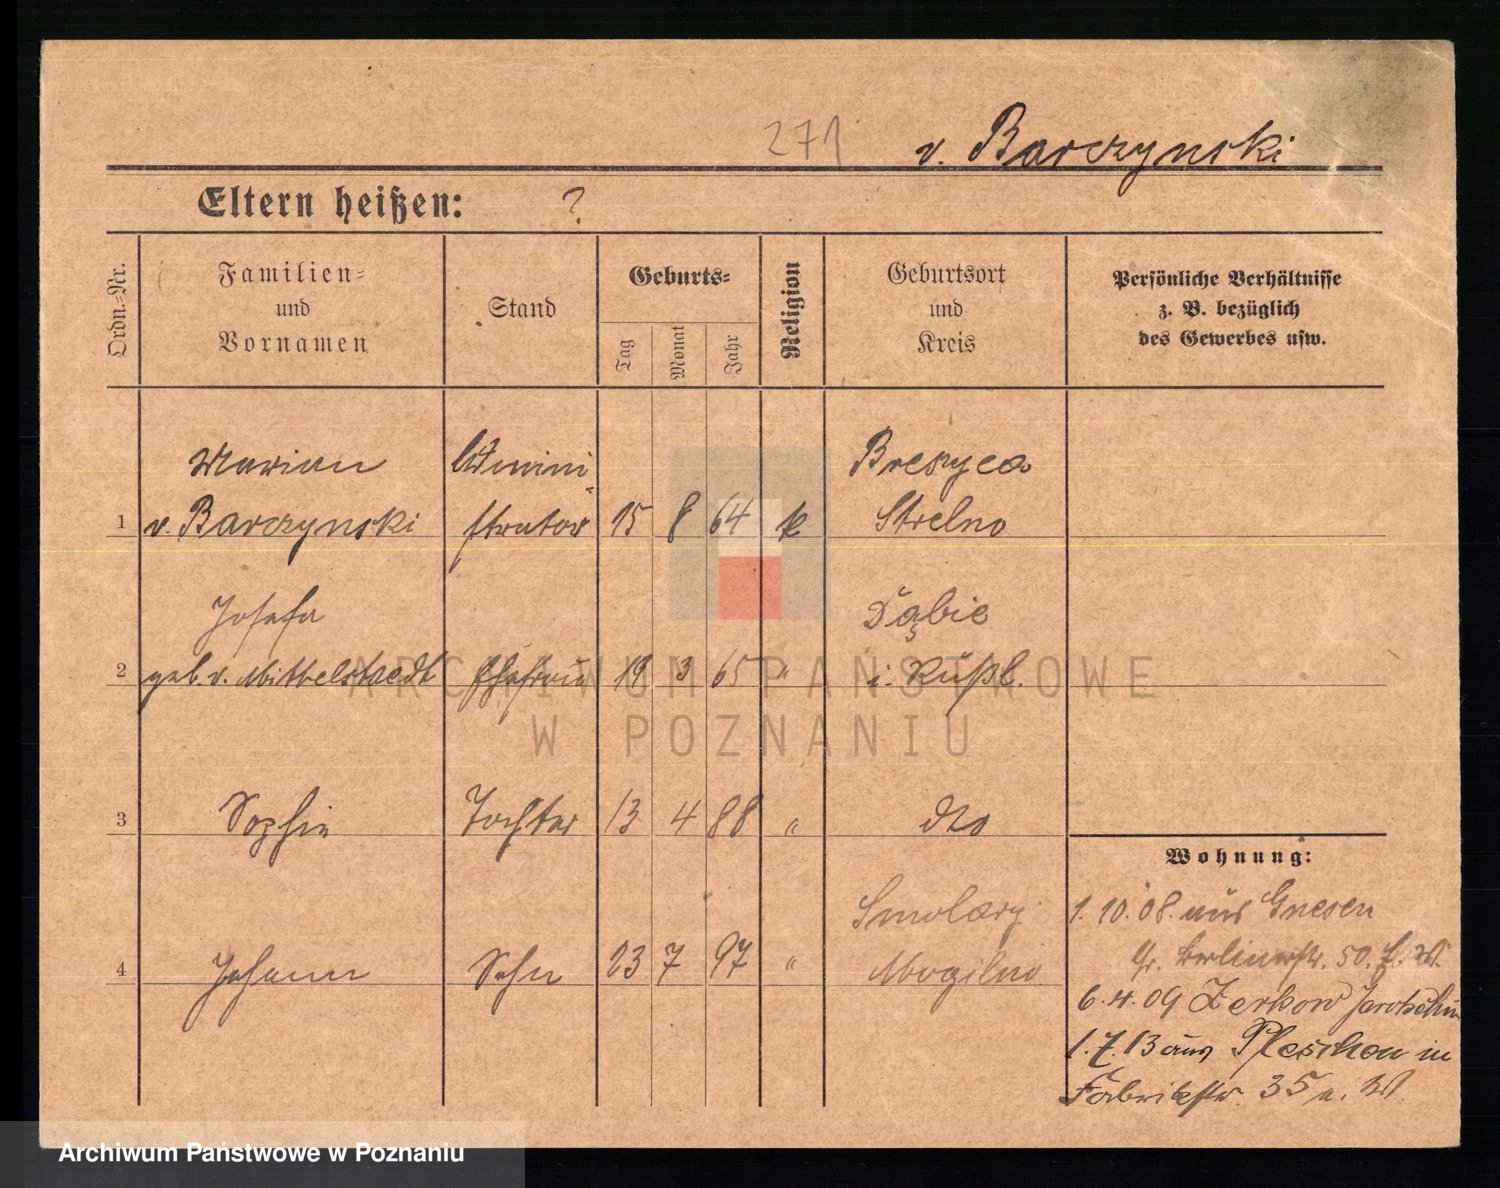 271
v. Barczynski
Eltern heißen: ?
Ordn.-Nr.
Familien-
und
Vornamen
Stand
Geburts-
Tag
Monat
Jahr
Religion
Geburtsort
und
Kreis
Persönliche Verhältnisse
z. B. bezüglich
des Gewerbes usw.
Marian Admini- Breszyca
1 v. Barczynski strator 15 8 64 k Strelno
Josefa Dąbie
2 geb. v. Mittelstaedt Ehefrau 19 3 65 " i. Rußl.
3 Sophie Tochter 13 4 88 " dto
Smolary
4 Johann Sohn 23 7 97 " Mogilno
Wohnung:
1. 10. 08. aus Gnesen
Gr. Berlinerstr. 50. W.
6. 4. 09 Zerkow Jarotschin
1. 7. 13 aus Pleschen in
Fabrikstr. 35 W.
ARCHIWUM PAŃSTWOWE
W POZNANIU
Archiwum Państwowe w Poznaniu